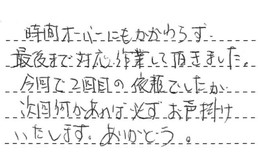 時間オーバーにもかかわらず
最後まで対応、作業して頂きました。
今回で2回目の依頼でしたが
次回何かあれば必ずお声掛け
いたします。ありがとう。